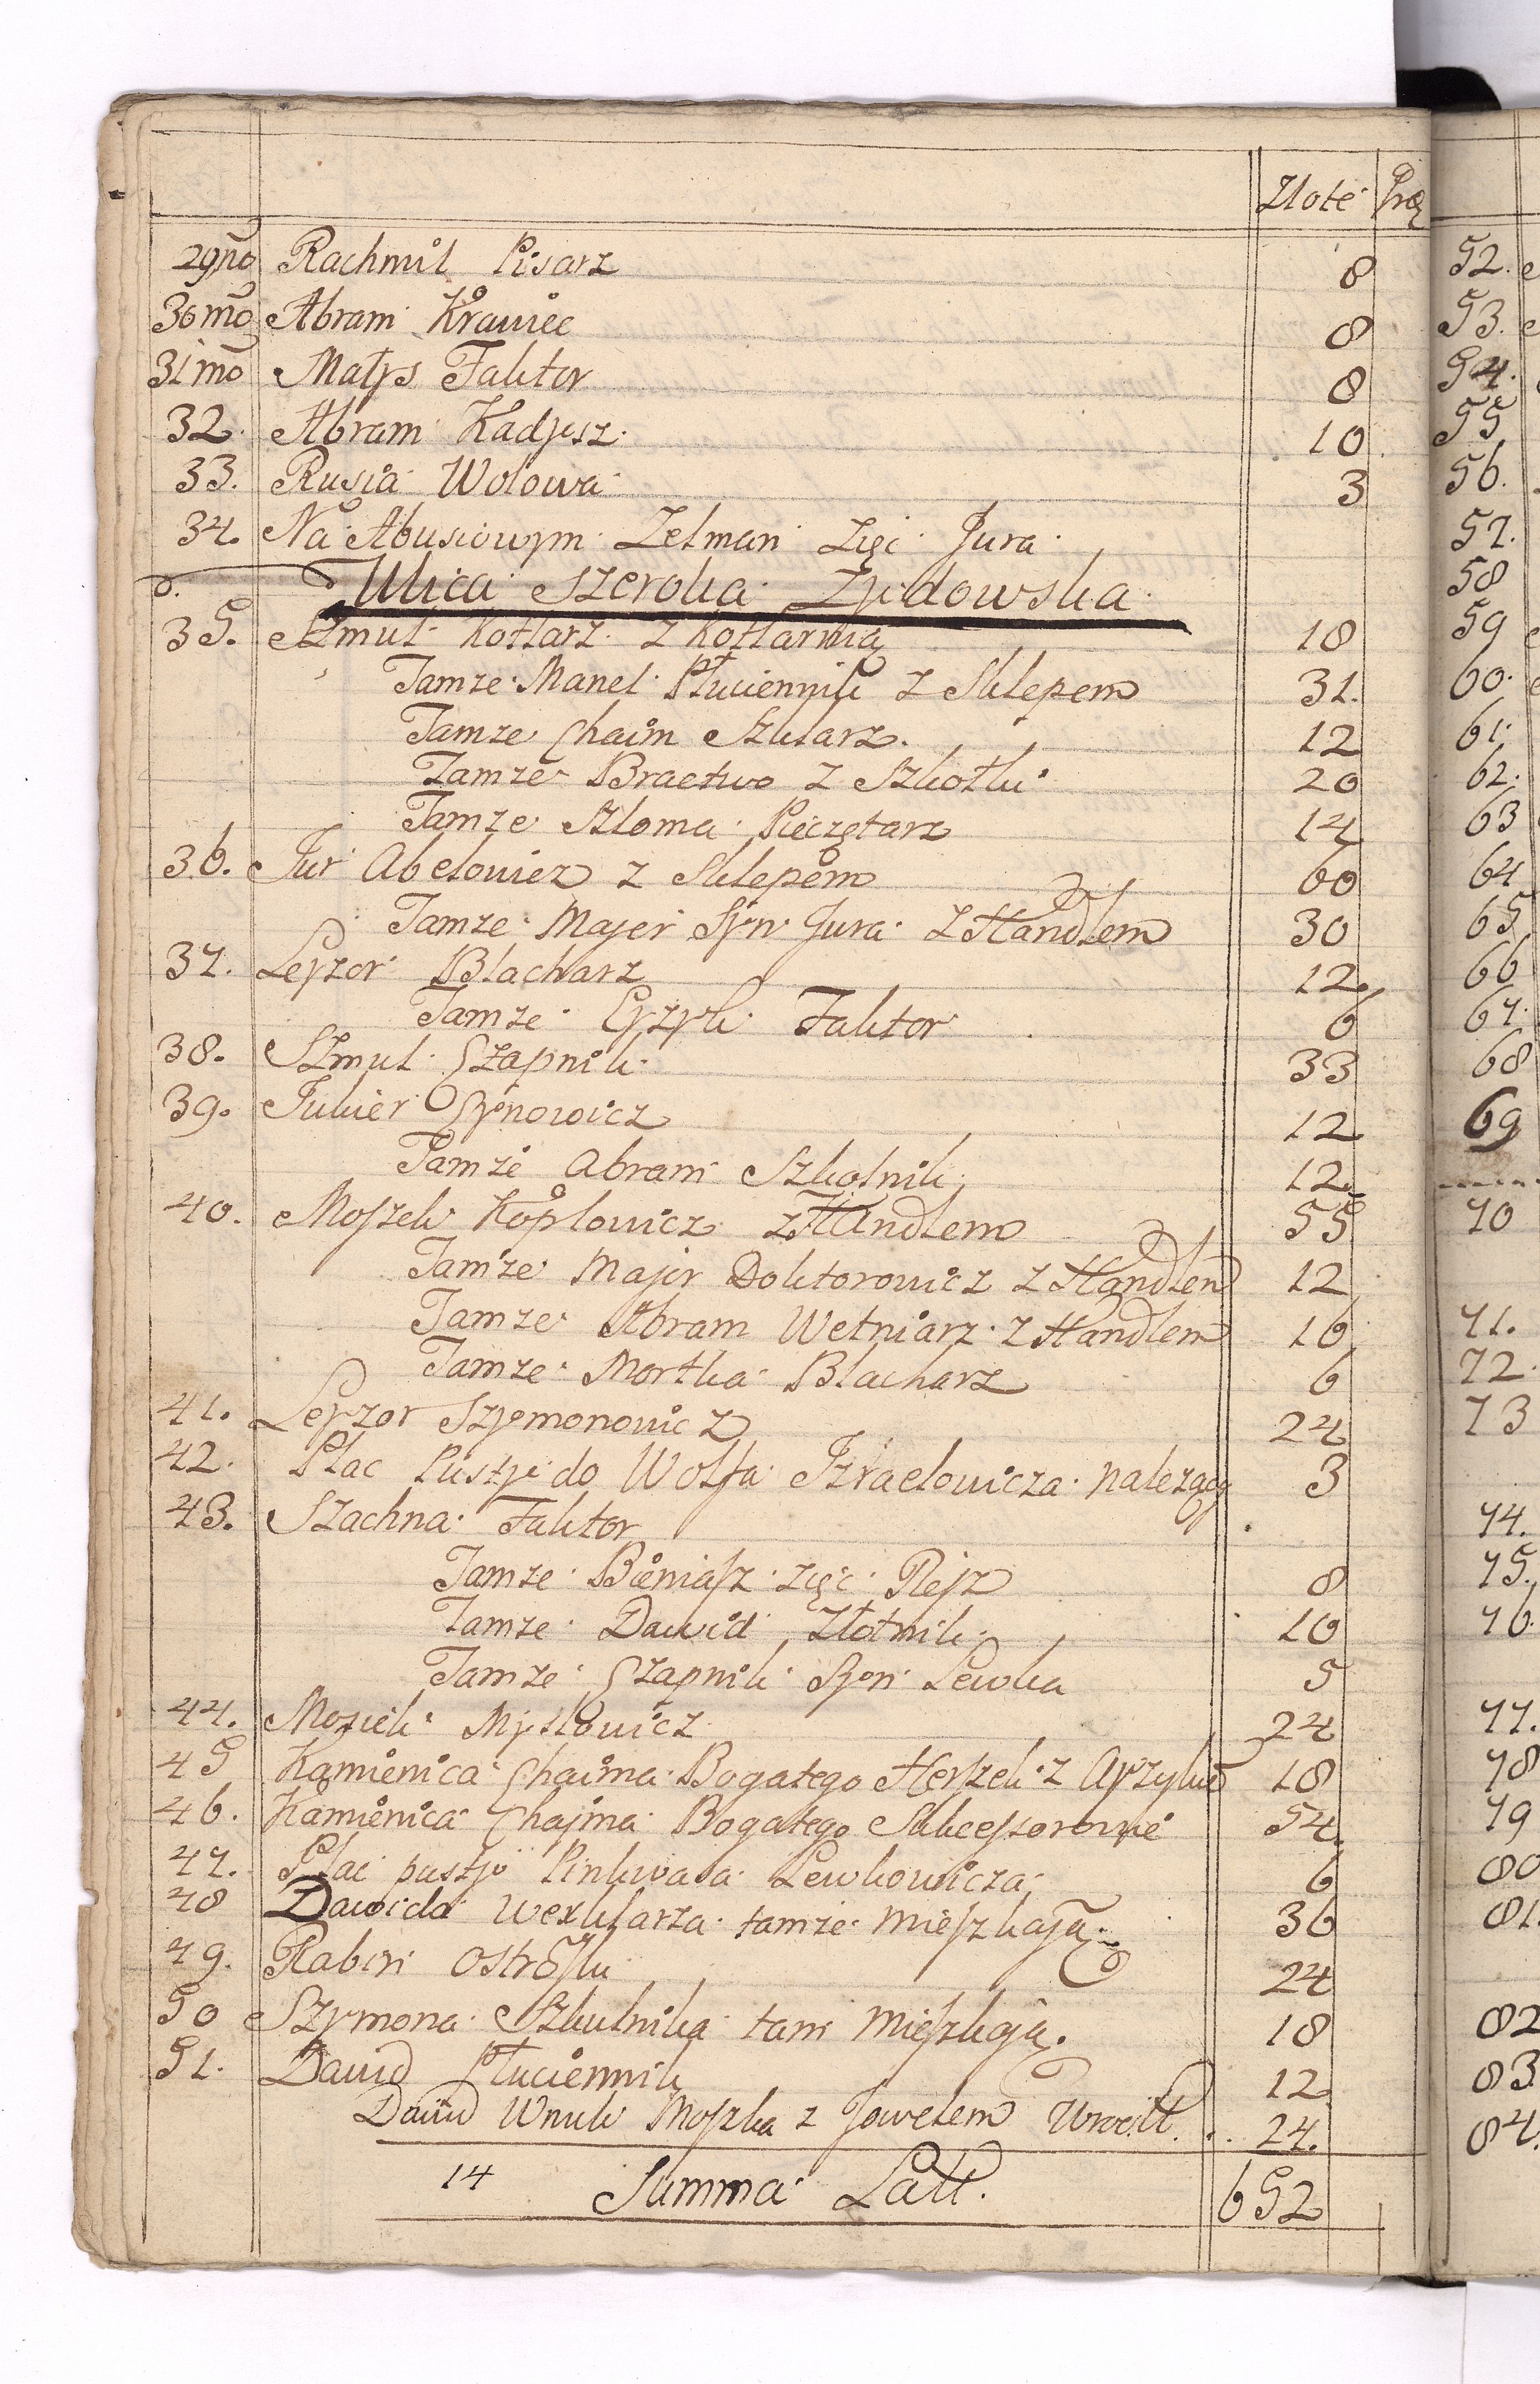 Złote Gro
29no Rachmil Pisarz 8
30mo Abram Krawiec 8
31mo Matys Faktor 8
32. Abram Kadysz 10
33. Rusia Wolowa 3
34. Na Abusiowym Zelman Zięć Jura
Ulica Szeroka Zydowska
35. Szmul Kotlarz z Kotlarnią 18
Tamze Manel Płuciennik z Sklepem 31.
Tamze Chaim Szklarz. 12
Tamze Bractwo z Szkołki 20
Tamze Szloma Pieczętarz 14
36. Jur Abelowicz z Sklepem 60
Tamze Majer Syn Jura z Handlem 30
37. Leyzor Blacharz 12
Tamze Eyzyk Faktor 6
38. Szmul Czapnik 33
39. Jukier Synowicz 12
Tamze Abram Szkolnik 12
40. Moszek Koplowicz z Handlem 55
Tamze Majer Doktorowicz z Handlem 12
Tamze Abram Wełniarz z Handlem 16
Tamze Mortka Blacharz 6
41. Leyzor Szymonowicz 24
42. Plac Pusty do Wolfa Izraelowicza nalezący 3
43. Szachna Faktor
Tamze Beniasz zięć Rejz 8
Tamze Dawid Złotnik 10
Tamze Czapnik Syn Lewka 5
44. Mosiek Myslowicz 24
45 Kamienica Chaima Bogatego Herszek z Ayzykiem 18
46. Kamienica Chajma Bogatego Sukcessorowie 54
47. Plac pusty Pinkwasa Lewkowicza 6
48 Dawida Wexlarza tamze mieszkają 36
49. Rabin Ostrozki 24
50 Szymona Szkulnika tam mieszkają. 18
51. Dawid Płuciennik 12
Dawid Wnuk Moszka z Jowelem 24.
14 Summa Latt. 652
52.
53.
54.
55
56.
57.
58
59
60.
61.
62.
63
64
65
66
67.
68
69
70
71.
72.
73
74.
75.
76.
77.
78
79
80
81.
82
83
84.